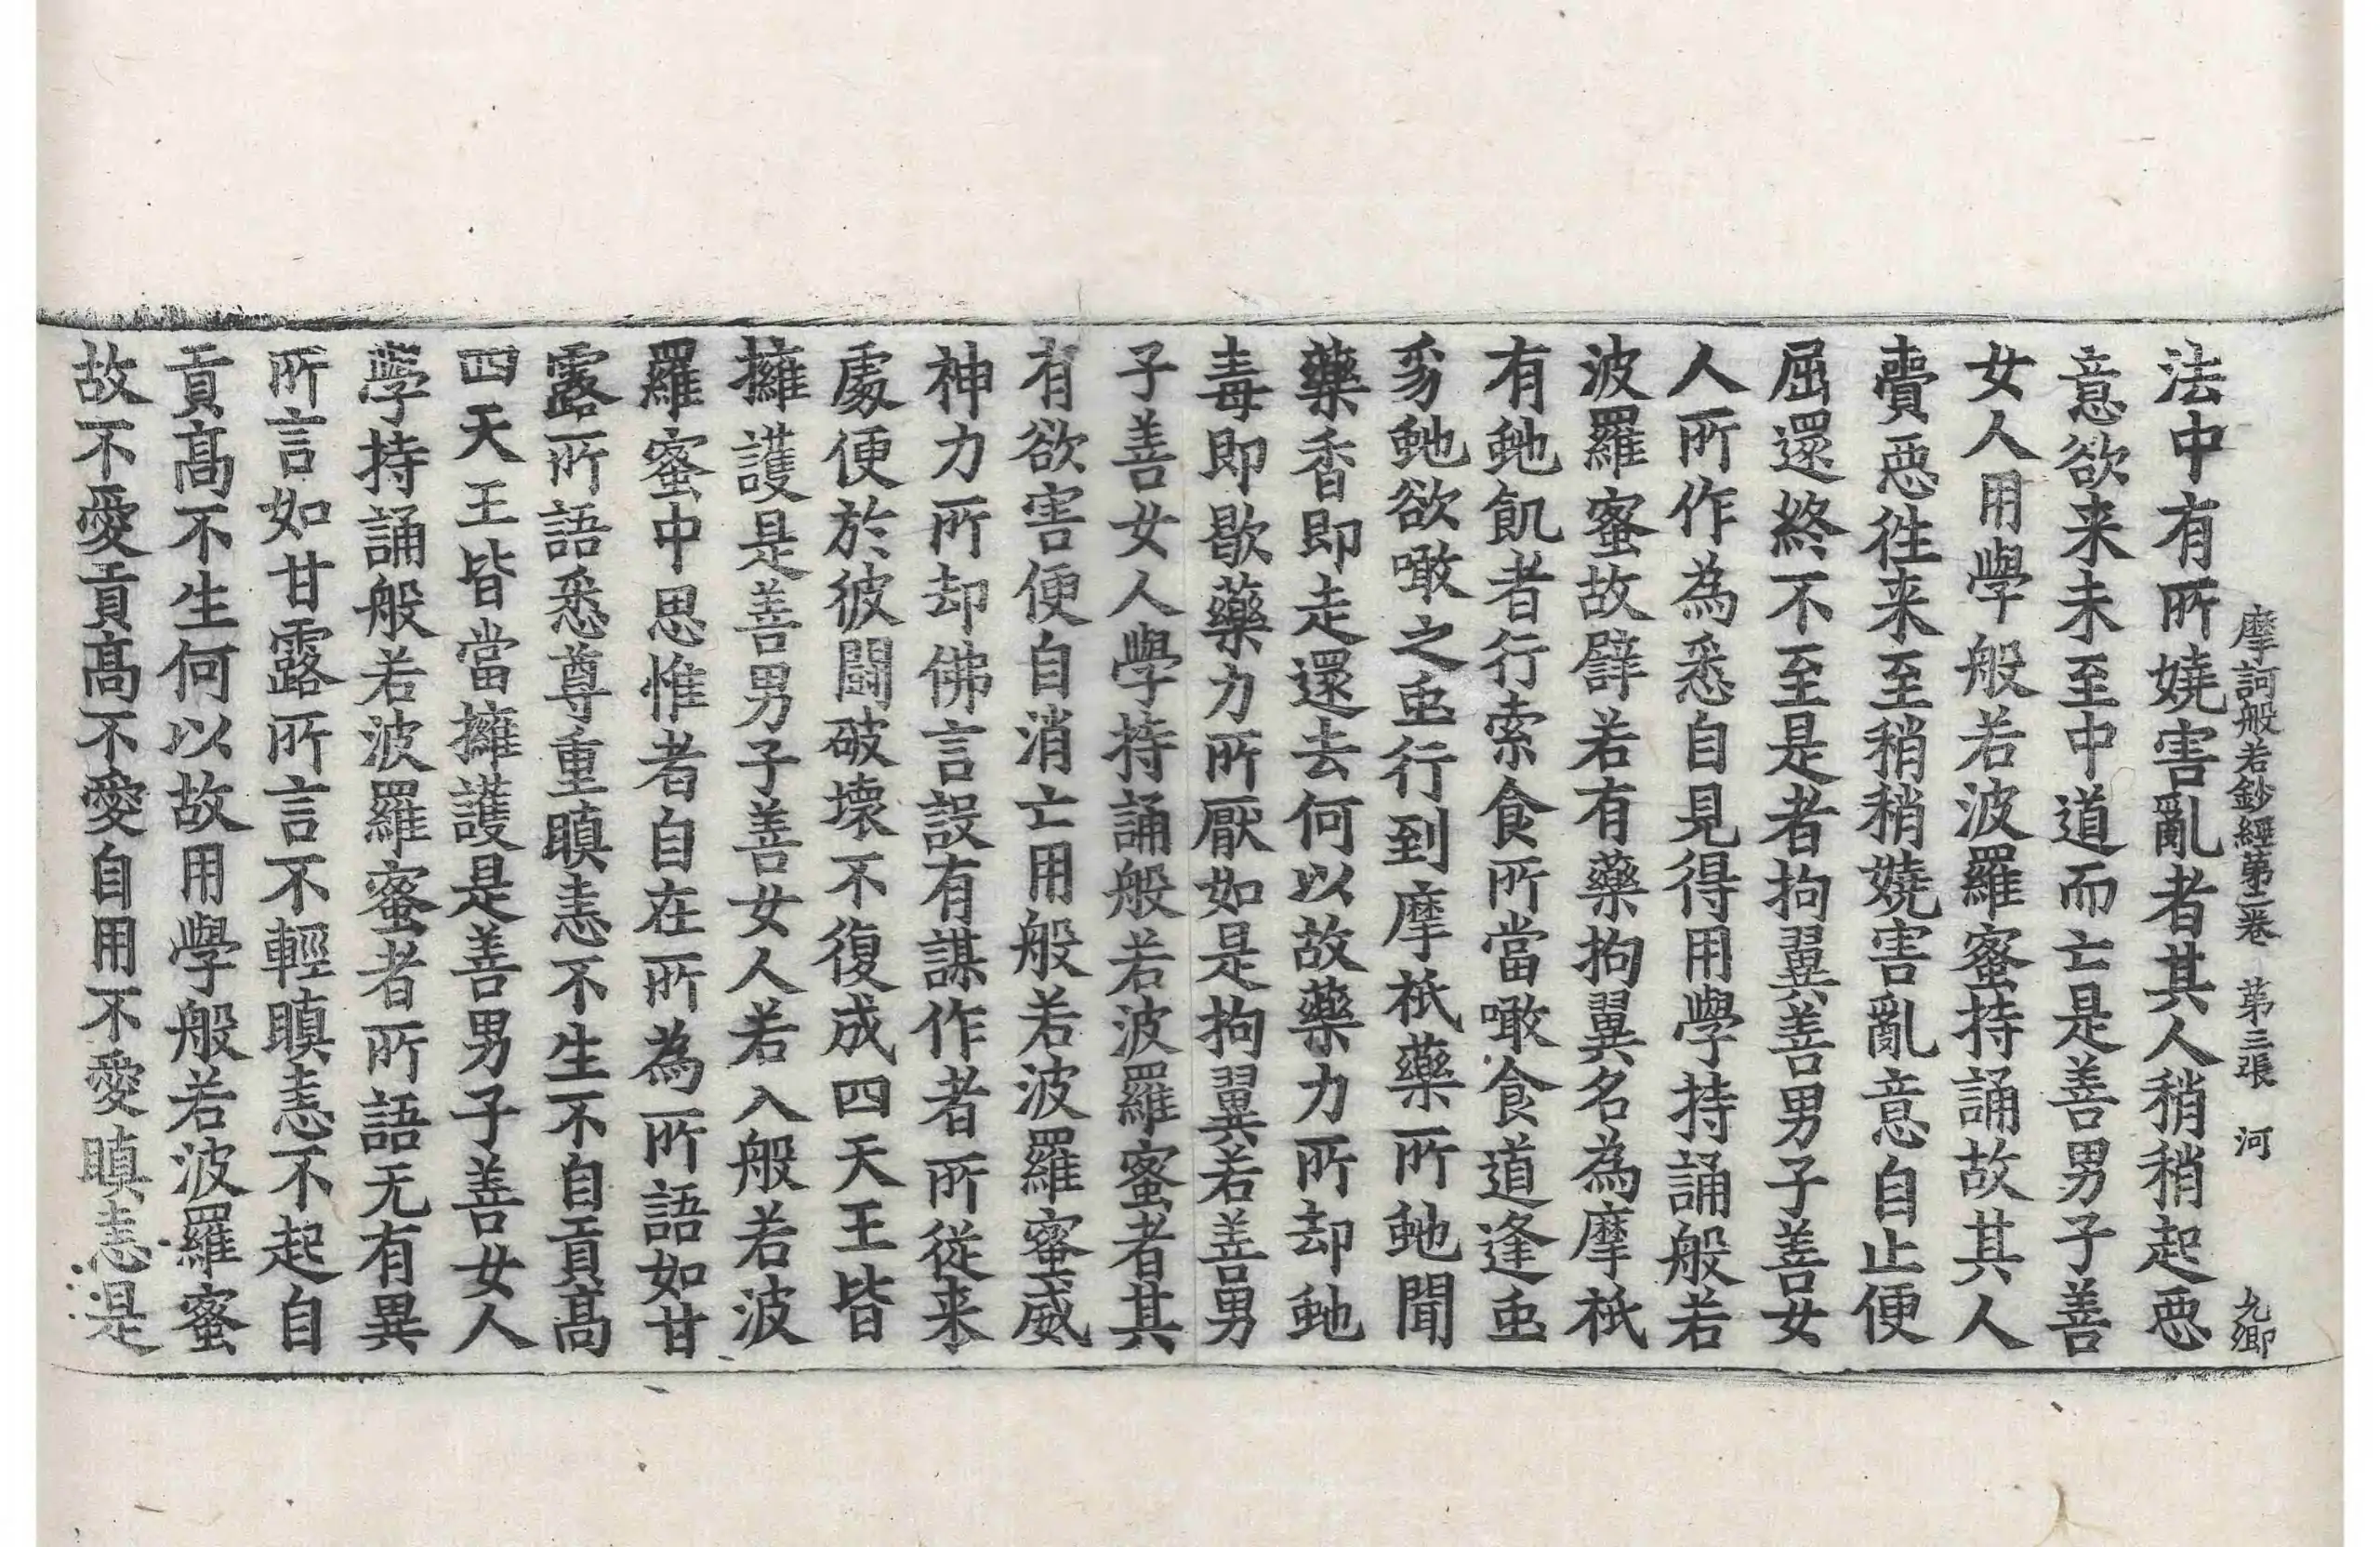 摩訶般若鈔經第二卷 第三張 河 九卿
法中有所嬈害亂者其人稍稍起惡
意欲来未至中道而亡是善男子善
女人用學般若波羅蜜持誦故其人
賷惡徃来至稍稍嬈害亂意自止便
屈還終不至是者拘翼善男子善女
人所作為悉自見得用學持誦般若
波羅蜜故譬若有藥拘翼名為摩祇
有虵飢者行索食所當噉食道逢䖝
豸虵欲噉之䖝行到摩祇藥所虵聞
藥香即走還去何以故藥力所却虵
毒即歇藥力所厭如是拘翼若善男
子善女人學持誦般若波羅蜜者其
有欲害便自消亡用般若波羅蜜威
神力所却佛言設有謀作者所従来
處便於彼鬪破壞不復成四天王皆
擁護是善男子善女人若入般若波
羅蜜中思惟者自在所為所語如甘
露所語悉尊重瞋恚不生不自貢髙
四天王皆當擁護是善男子善女人
學持誦般若波羅蜜者所語无有異
所言如甘露所言不輕瞋恚不起自
貢髙不生何以故用學般若波羅蜜
故不愛貢髙不愛自用不愛瞋恚是